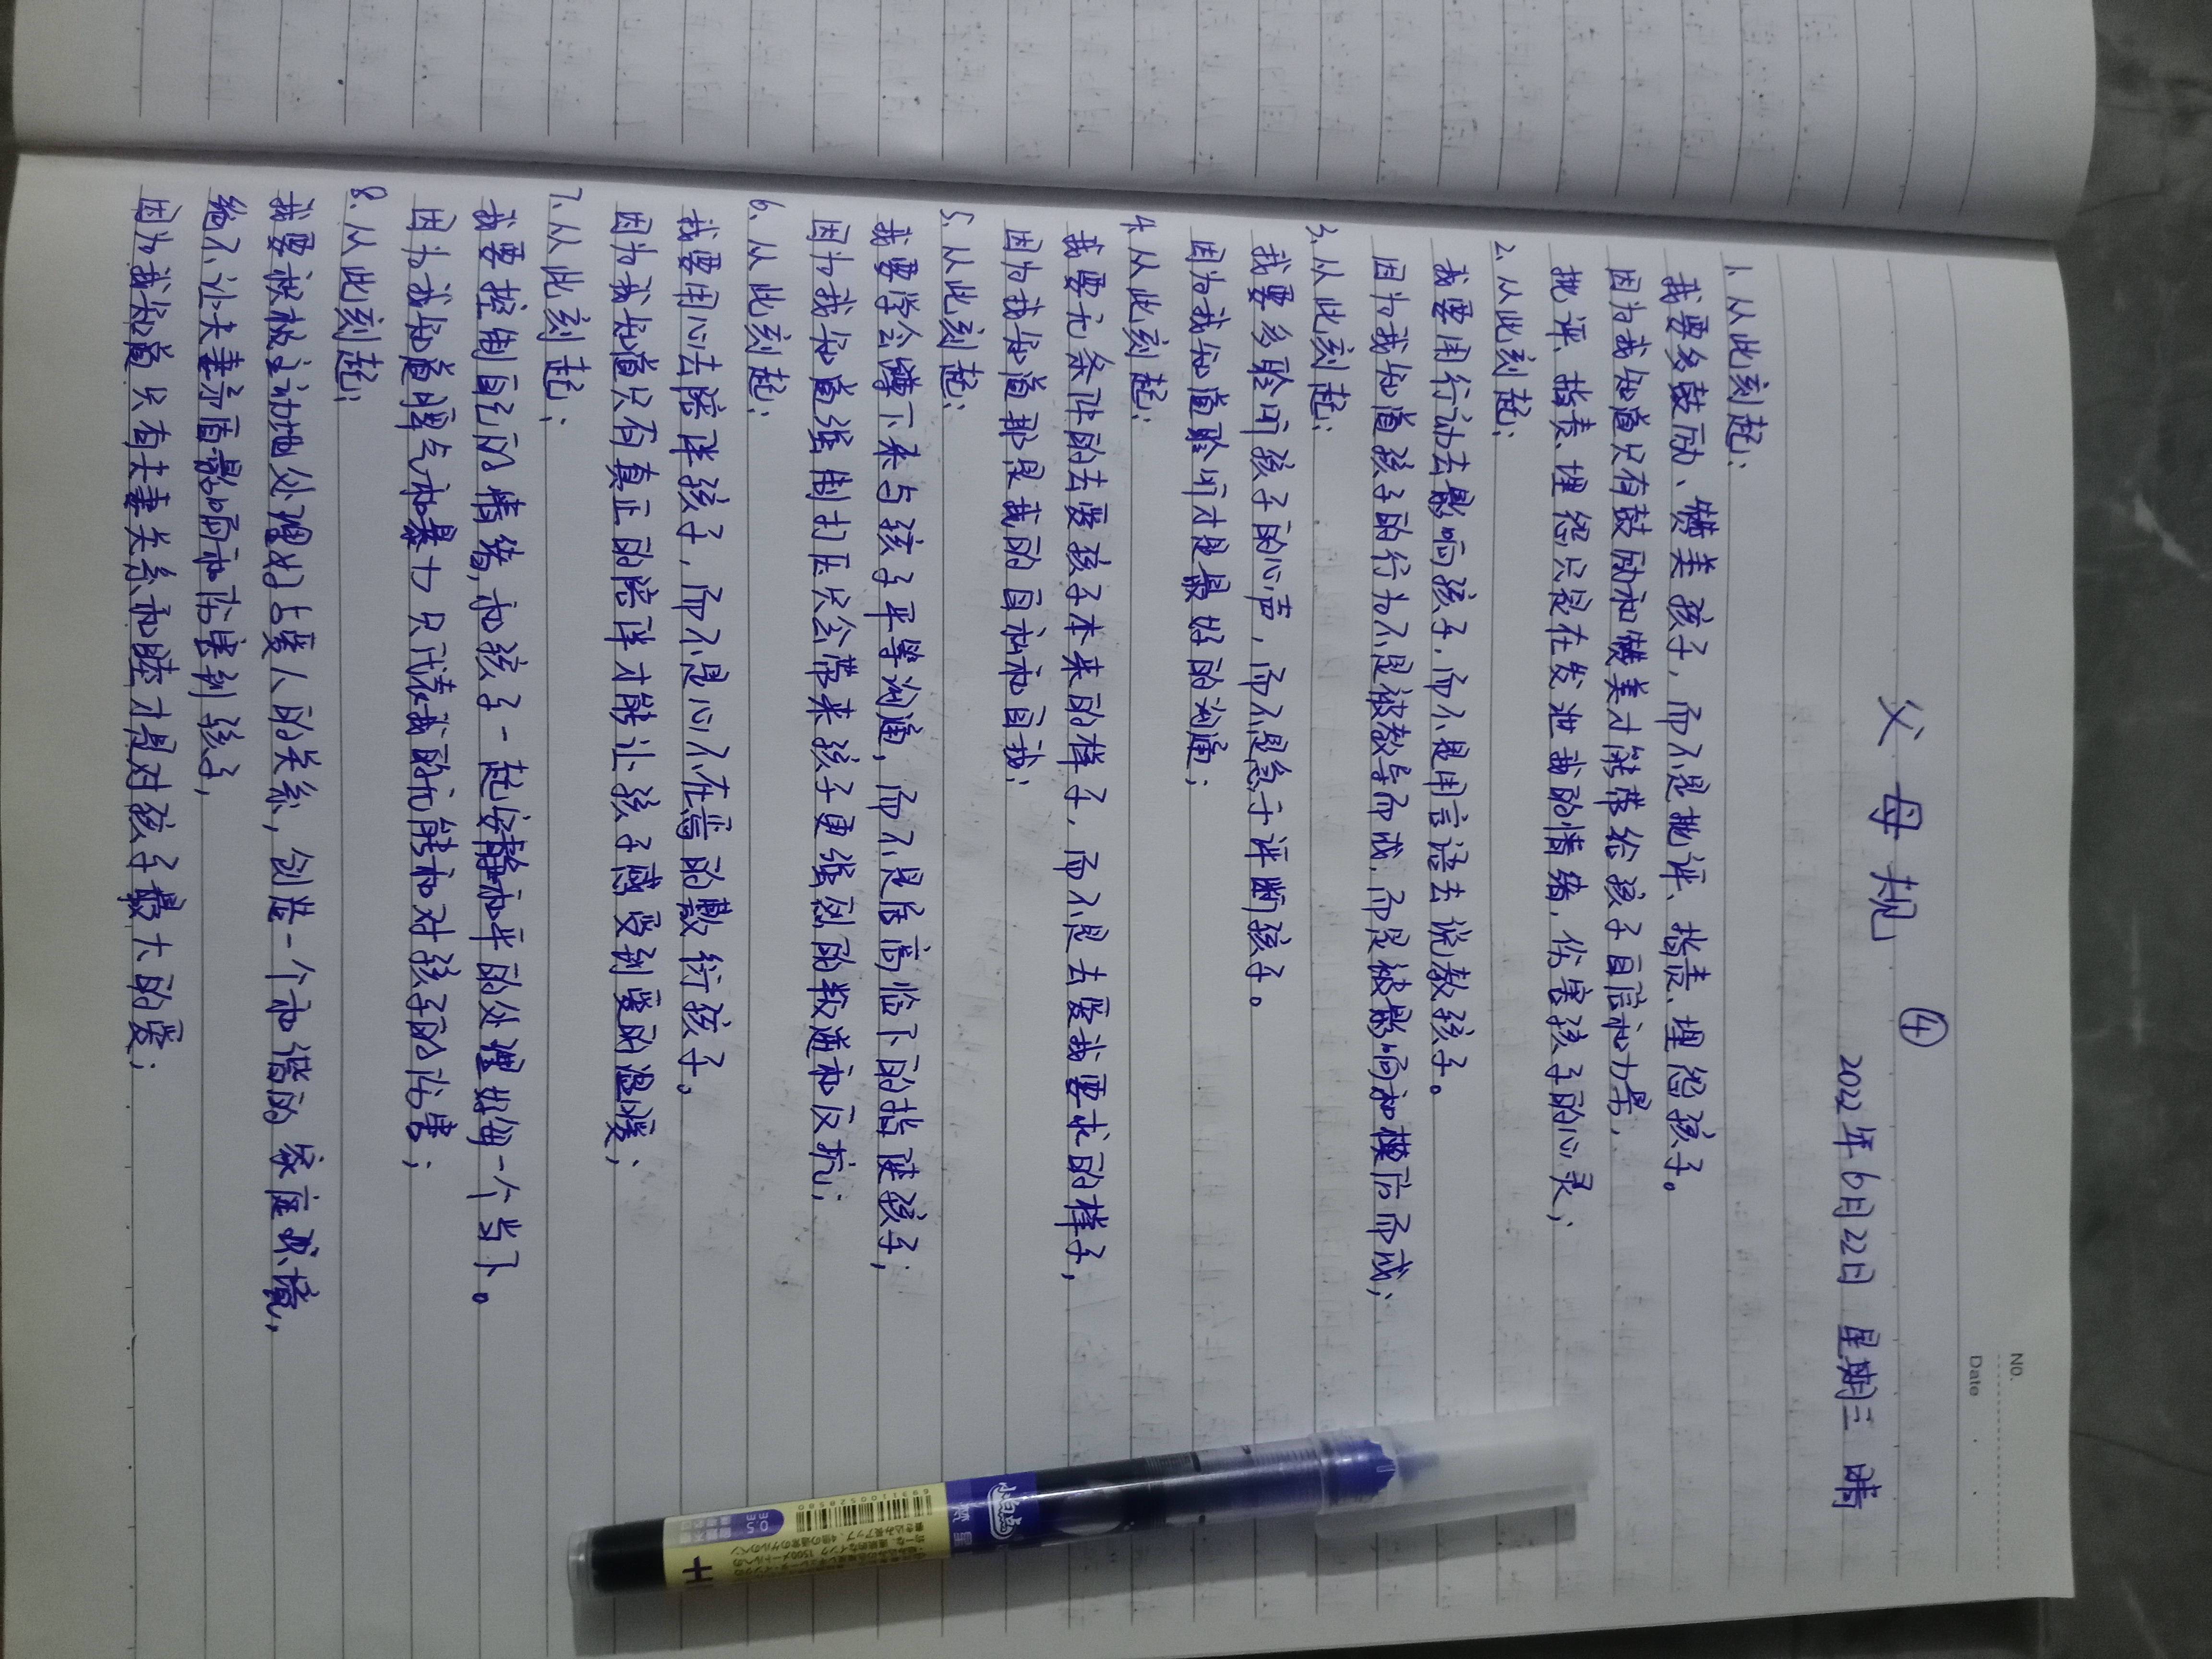 NO.
Date
父母规 ④
2022年6月22日 星期三 晴
1. 从此刻起;
我要多鼓励、赞美孩子,而不是批评、指责、埋怨孩子。
因为我知道只有鼓励和赞美才能带给孩子自信和力量,
批评、指责、埋怨只是在发泄我的情绪,伤害孩子的心灵;
2. 从此刻起;
我要用行动去影响孩子,而不是用言语去说教孩子。
因为我知道孩子的行为不是被教导而成,而是被影响和模仿而成;
3. 从此刻起;
我要多聆听孩子的心声,而不是急于评断孩子。
因为我知道聆听才是最好的沟通;
4. 从此刻起;
我要无条件的去爱孩子本来的样子,而不是去爱我要求的样子,
因为我知道那是我的自私和自我;
5. 从此刻起;
我要学会蹲下来与孩子平等沟通,而不是居高临下的指使孩子;
因为我知道强制打压只会带来孩子更强烈的叛逆和反抗;
6. 从此刻起;
我要用心去陪伴孩子,而不是心不在焉的敷衍孩子。
因为我知道只有真正的陪伴才能让孩子感受到爱的温暖;
7. 从此刻起;
我要控制自己的情绪,和孩子一起安静和平的处理好每一个当下。
因为我知道脾气和暴力只代表我的无能和对孩子的伤害;
8. 从此刻起;
我要积极主动地处理好与爱人的关系,创造一个和谐的家庭环境,
绝不让夫妻矛盾影响和伤害到孩子,
因为我知道只有夫妻关系和睦才是对孩子最大的爱;
小白点
0.5
6931100528580